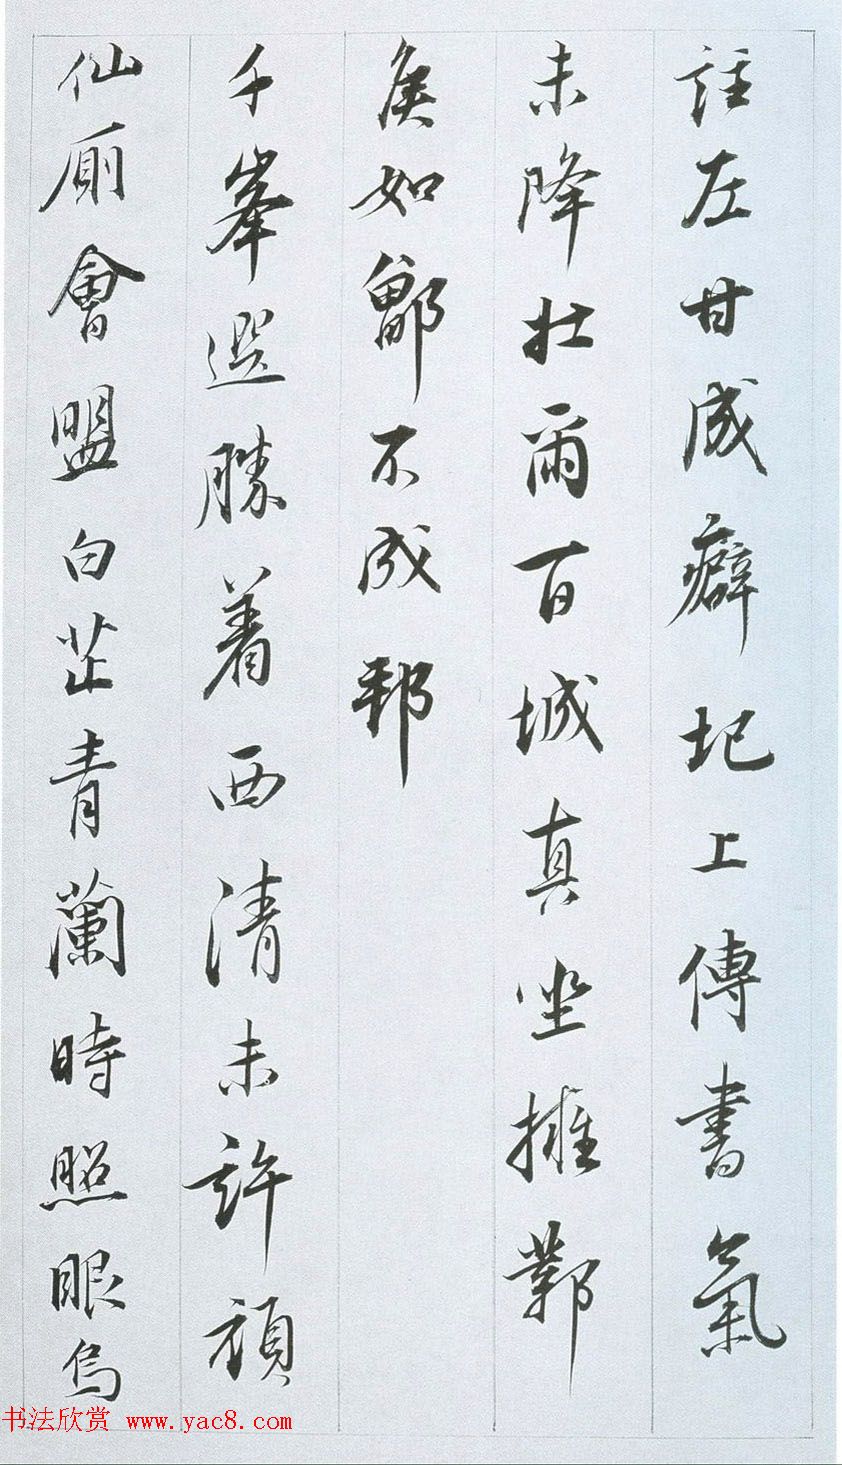 註左甘成癖圯上傳書氣
未降壮爾百城真坐擁鄴
侯如鄒不成邦
千峯選勝着西清未許頑
仙厠會盟白芷青蘭時照眼烏
书法欣赏 www.yac8.com